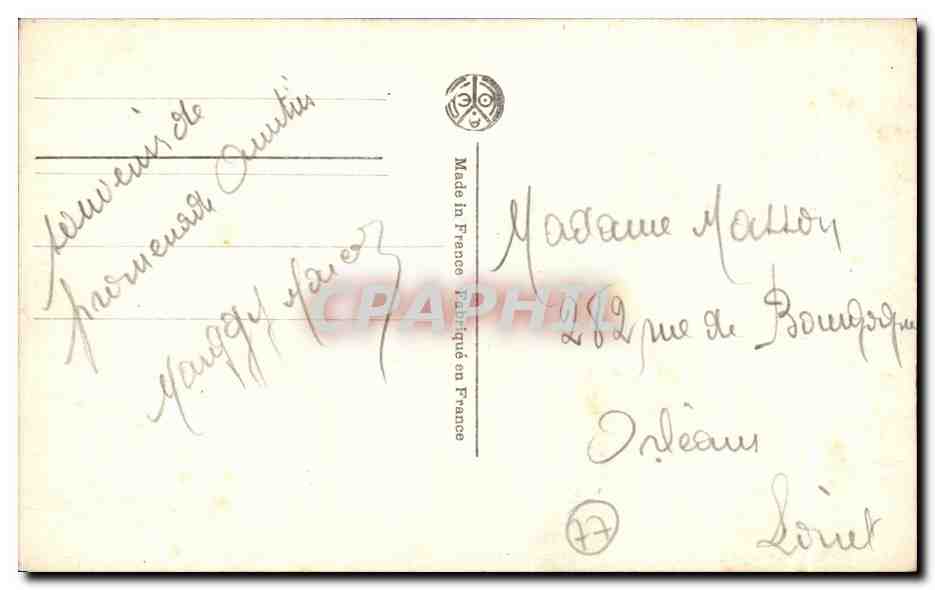 souvenir de
promenade
Made in France Fabriqué en France
CPAPHIL
Madame Masson
282 rue de Bourgogne
Orléans
Loiret
77